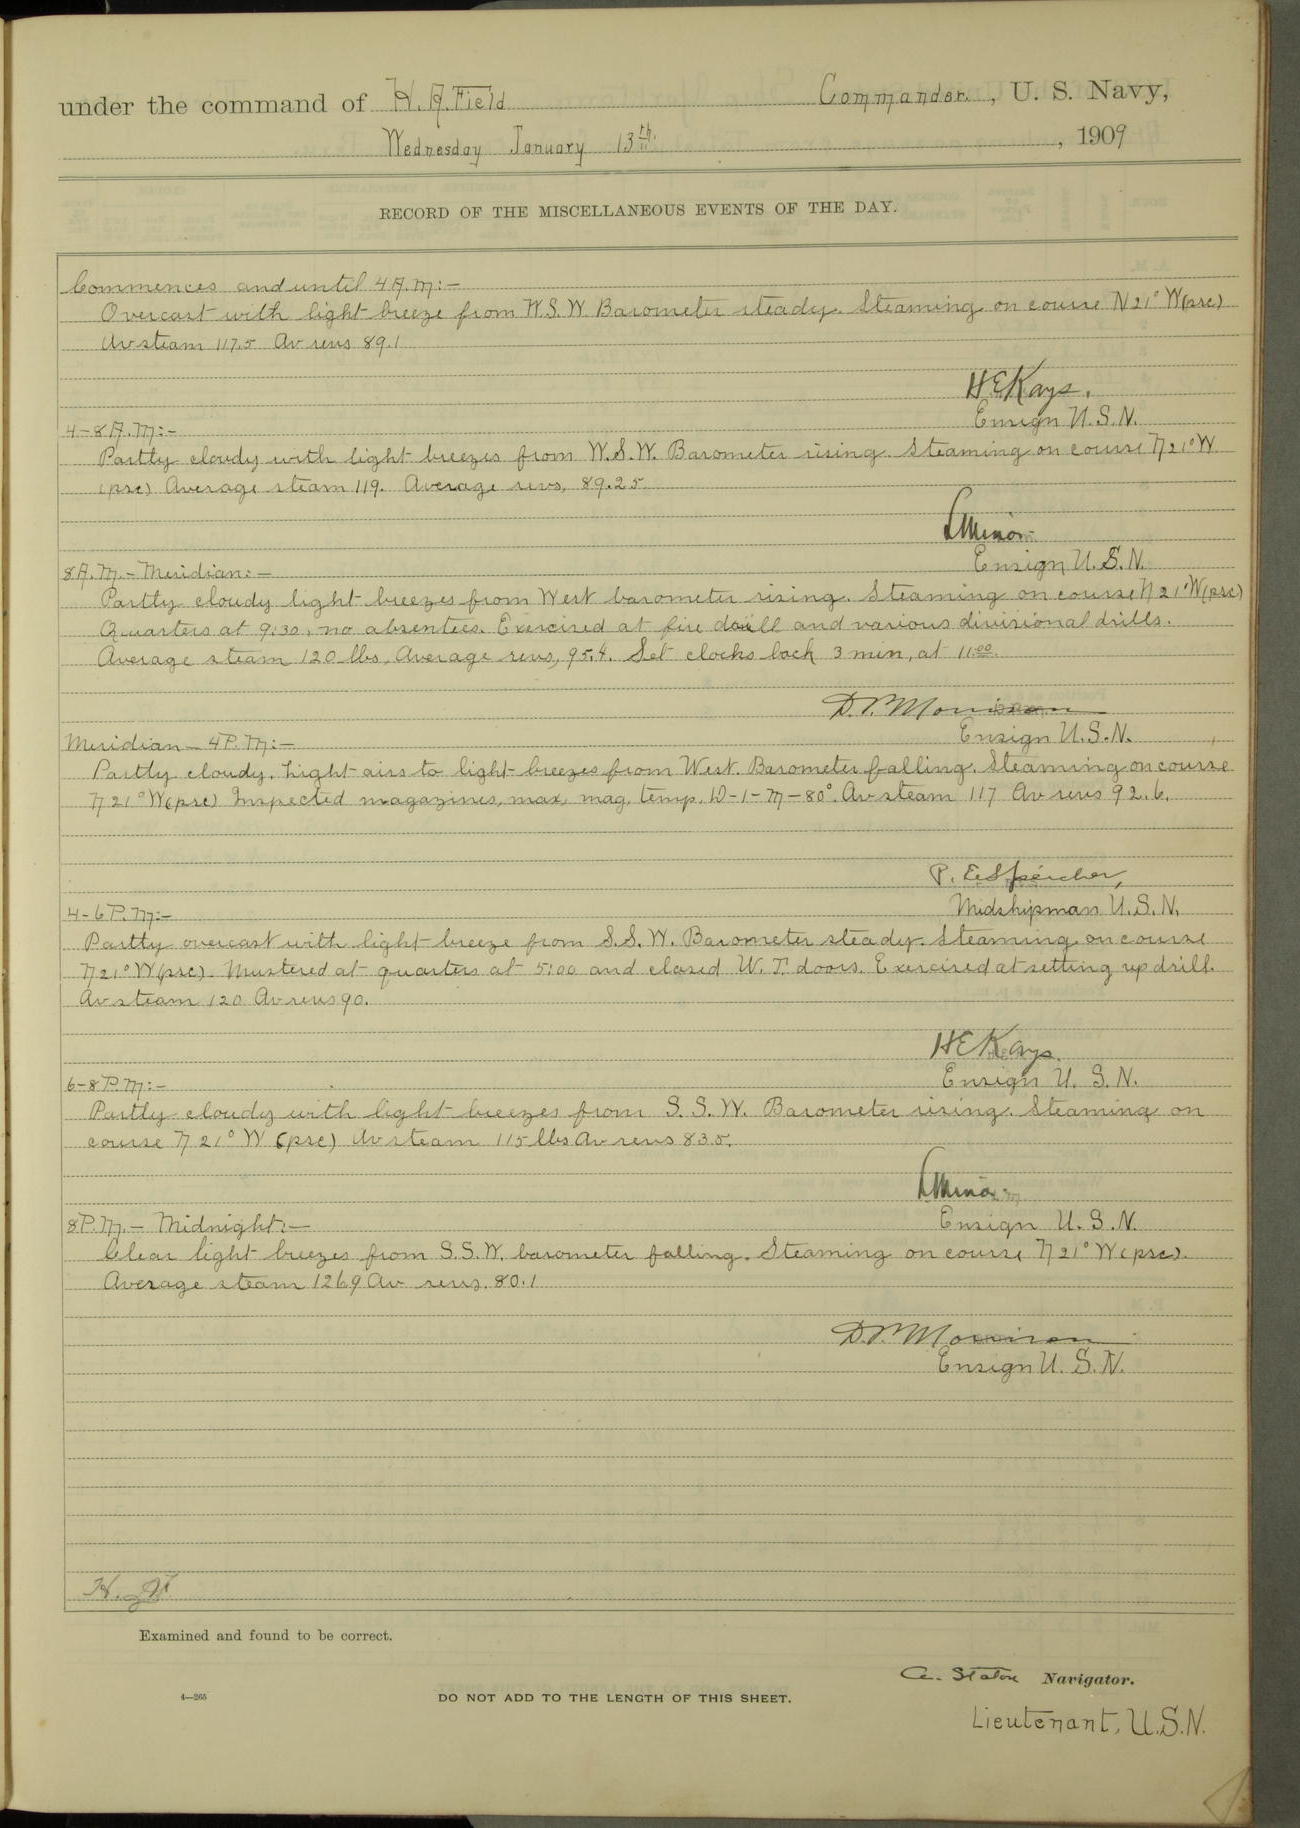 under the command of H. A. Field Commander, U. S. Navy,
Wednesday January 13th. , 1909
RECORD OF THE MISCELLANEOUS EVENTS OF THE DAY.
Commences and until 4 A.M:-
Overcast with light breeze from W.S.W Barometer steady. Steaming on course N 21° W (psc)
Av steam 117.5 Av revs 89.1
H E Kays.
Ensign U.S.N.
4-8 A.M:-
Partly cloudy with light breezes from W.S.W. Barometer rising. Steaming on course N 21° W
(psc) Average steam 119. Average revs, 89.25
L Minor
Ensign U.S.N.
8 A.M.- Meridian:-
Partly cloudy light breezes from West barometer rising. Steaming on course N 21° W (psc)
Quarters at 9:30, no absentees. Exercised at fire drill and various divisional drills.
Average steam 120 lbs, Average revs, 95.4. Set clocks back 3 min, at 11:00.
D. P. Morrison
Ensign U.S.N.
Meridian - 4 P.M:-
Partly cloudy. Light airs to light breezes from West. Barometer falling. Steaming on course
N 21° W (psc) Inspected magazines, max, mag. temp. D-1-M-80°. Av steam 117 Av revs 92.6.
P. E. Speicher,
Midshipman U.S.N.
4-6 P.M:-
Partly overcast with light breeze from S.S.W. Barometer steady. Steaming on course
N 21° W (psc). Mustered at quarters at 5:00 and closed W. T. doors. Exercised at setting up drill.
Av steam 120 Av revs 90.
H E Kays.
Ensign U. S. N.
6-8 P.M:-
Partly cloudy with light breezes from S. S. W. Barometer rising. Steaming on
course N 21° W (psc) Av steam 115 lbs Av revs 83.5.
L Minor
Ensign U. S. N.
8 P.M.- Midnight:-
Clear light breezes from S.S.W. barometer falling. Steaming on course N 21° W (psc).
Average steam 126.9 Av revs. 80.1
D. P. Morrison
Ensign U. S. N.
Examined and found to be correct.
A. Staton Navigator.
4—265
DO NOT ADD TO THE LENGTH OF THIS SHEET.
Lieutenant, U.S.N.